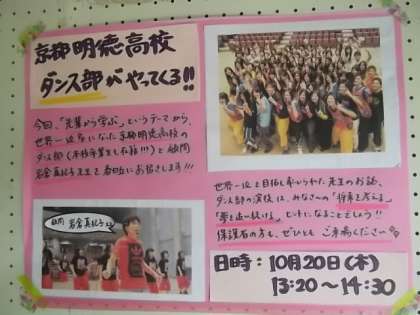 京都明徳高校
ダンス部がやってくる!!
今回、「先輩から学ぶ」というテーマから、
世界一位になった京都明徳高校の
ダンス部(本校卒業生も在籍!!!)と顧問
岩倉真紀子先生を春日丘にお招きします!!!
世界一位を目指し努められた先生のお話、
ダンス部の演技は、みなさんの「将来を考える」
「夢を追い続ける」ヒントになることでしょう!!
保護者の方も、ぜひともご来場ください
顧問 岩倉真紀子先生
日時:10月20日(木)
13:20〜14:30